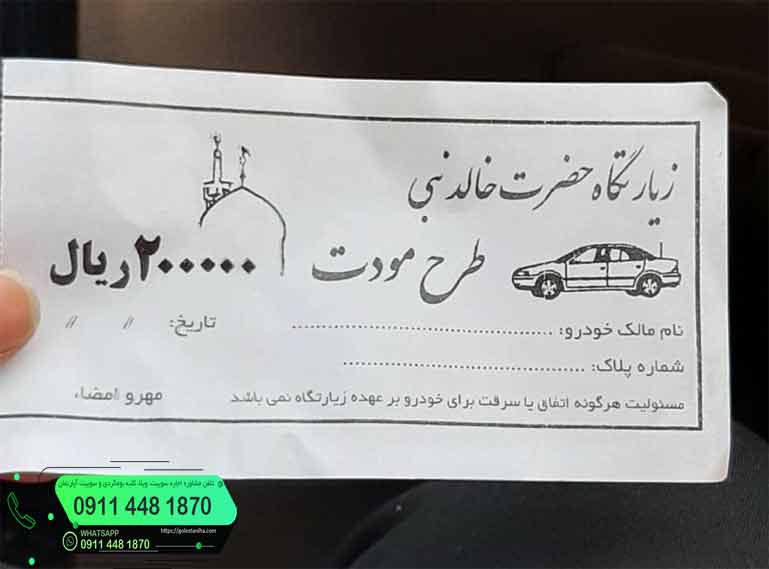 زیارتگاه حضرت خالد نبی
طرح مودت
۲۰۰۰۰۰ ریال
نام مالک خودرو: ..........................................
تاریخ: // //
شماره پلاک: ..........................................
مسئولیت هرگونه اتفاق یا سرقت برای خودرو بر عهده زیارتگاه نمی باشد
مهرو امضاء
تلفن مشاوره اجاره سوییت، ویلا، کلبه بومگردی و سوییت آپارتمان
0911 448 1870
https://golestanlha.com
WHATSAPP
0911 448 1870